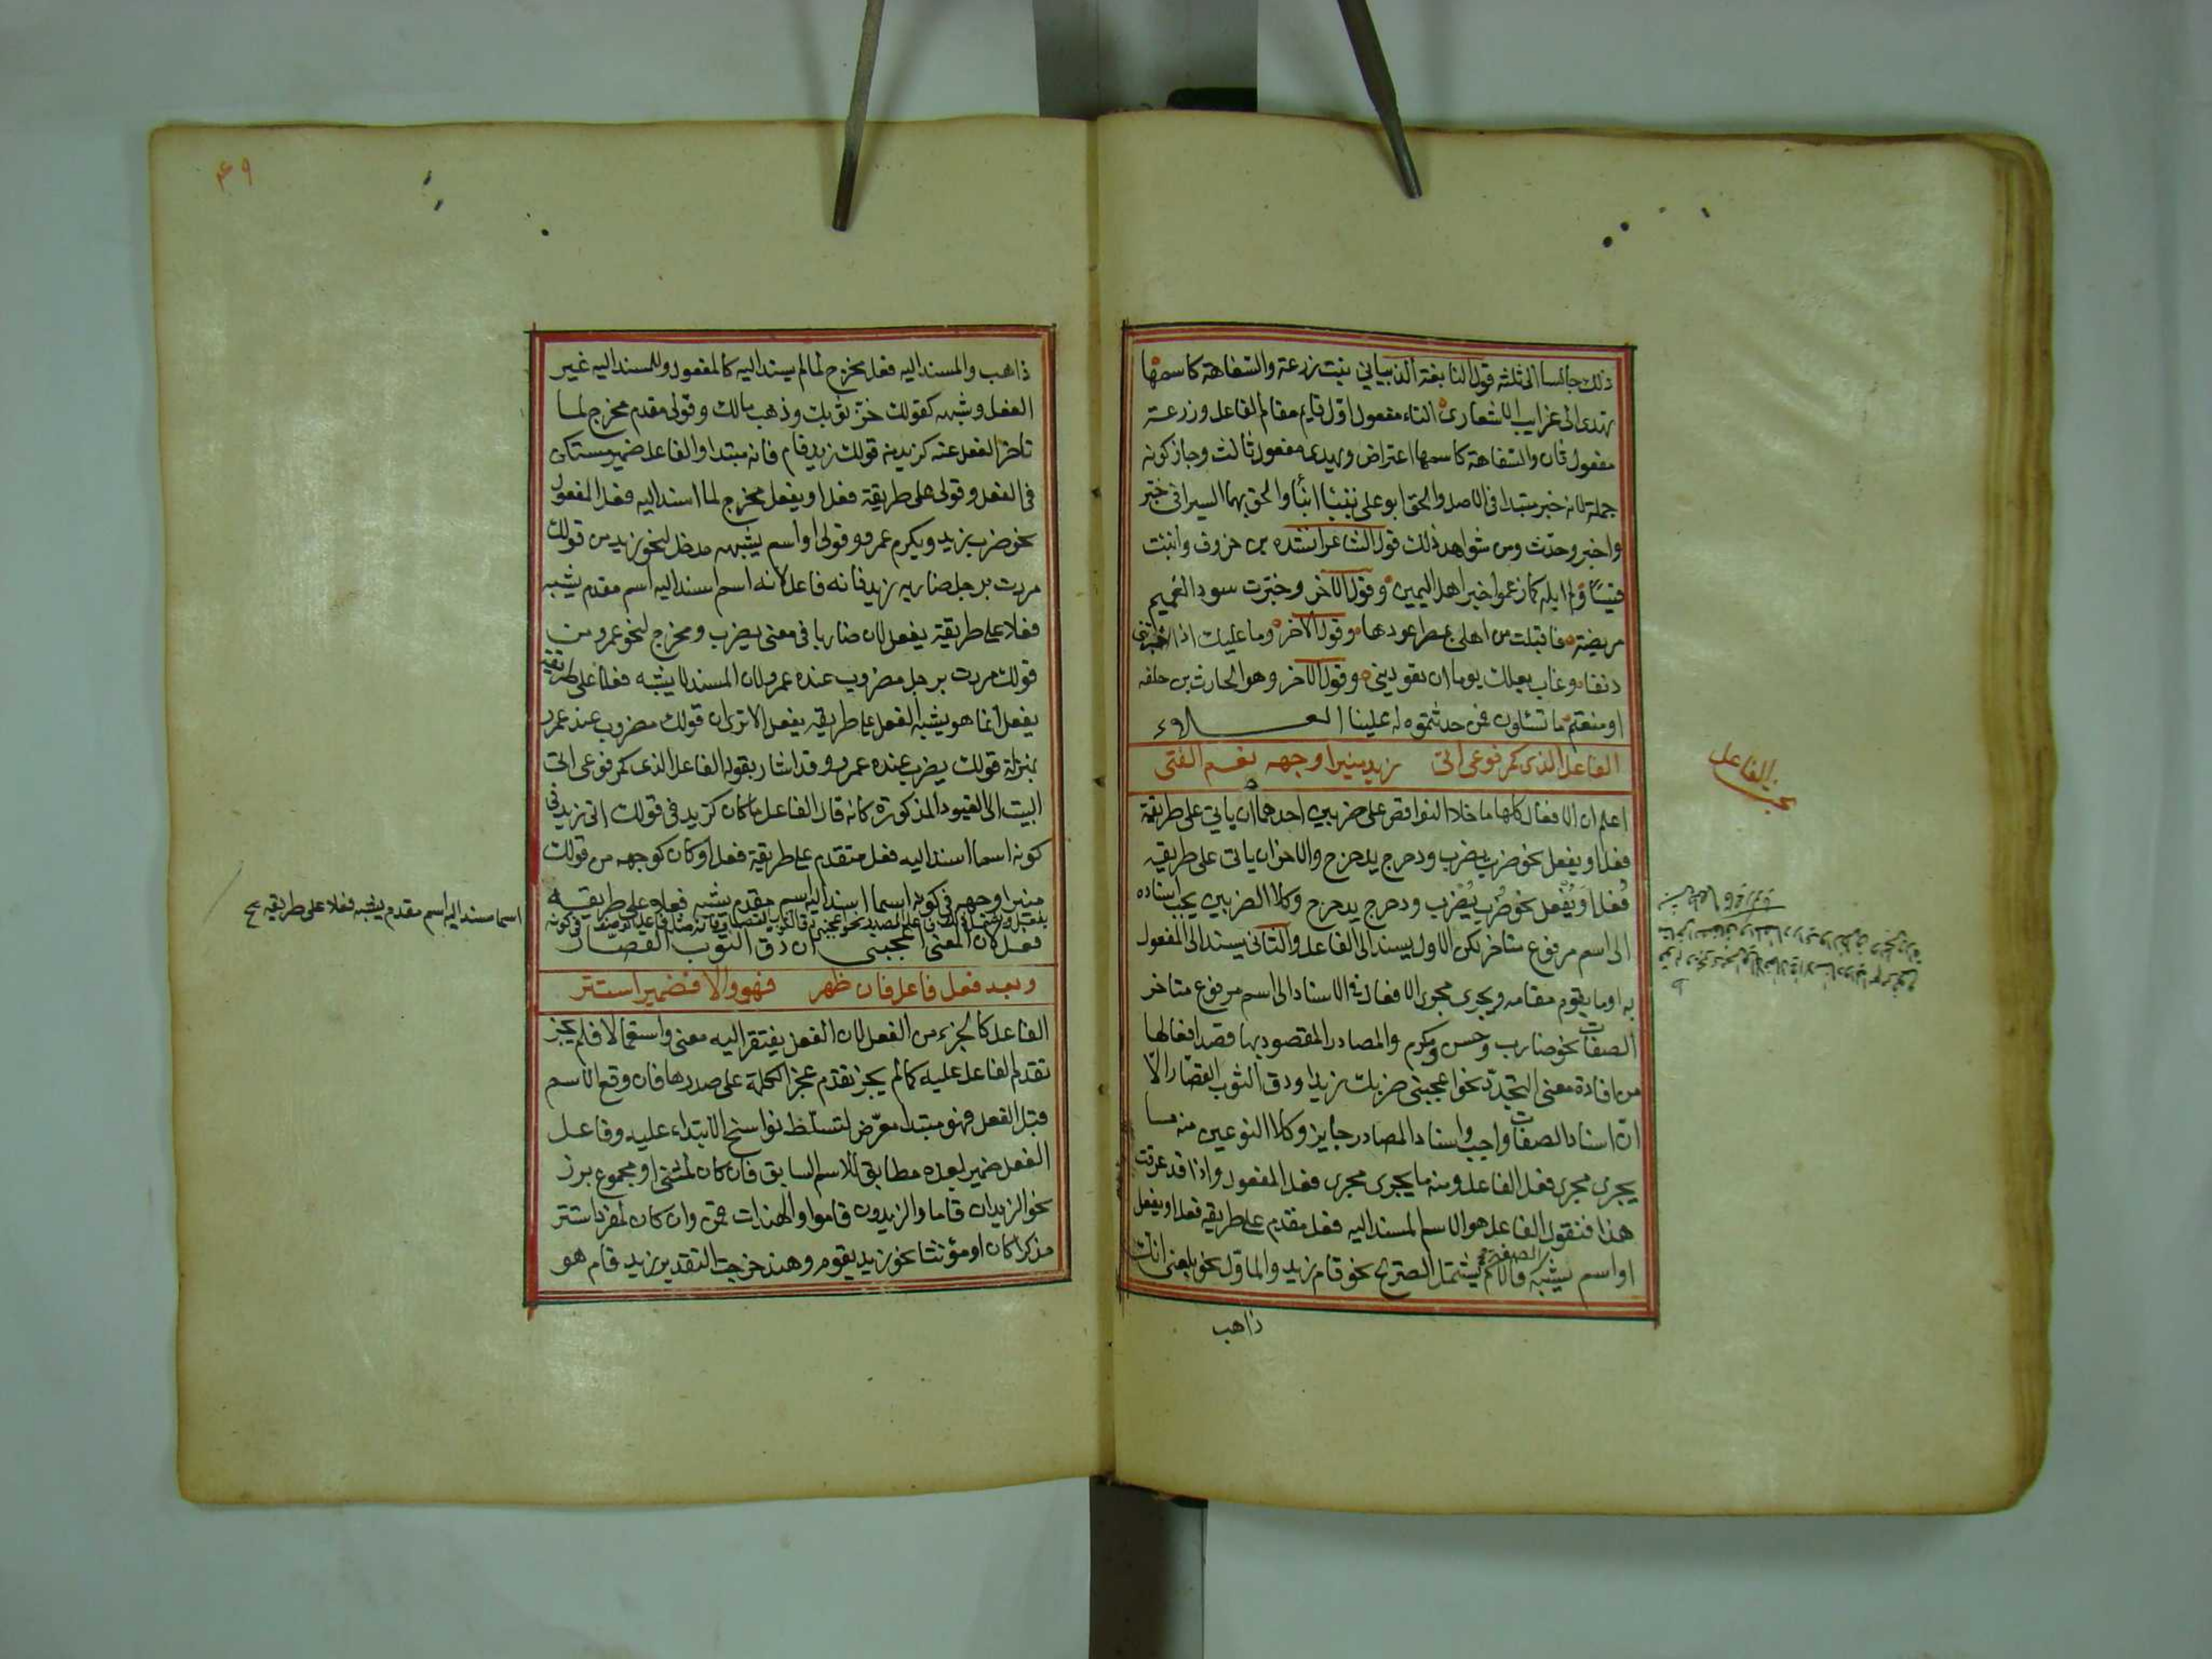 ذلك جالسا الى ثلثة قول النابغة الذبياني نبئت زرعة والسفاهة كاسمها
يهدى الى غرايب الاشعار فالتاء مفعول اول قايم مقام الفاعل وزرعة
مفعول ثان والسفاهة كاسمها اعتراض ويهدى مفعول ثالث وجاز كونه
جملة لانه خبر مبتدا فى الاصل والحق ابو على بنبّأ انبأ والحق بهما السيرافى خبّر
واخبر وحدّث ومن شواهد ذلك قول الشاعر انشده بن خروف وانبئت
قيسًا ولم ابله كما زعموا خير اهل اليمن وقول الآخر وخبّرت سودا الغميم
مريضة فاقبلت من اهلى بمصر اعودها وقول الآخر وما عليك اذا اخبرتنى
دنفا وغاب بعلك يوما ان تعودينى وقول الآخر وهو الحارث بن حلفه
او منعتم ما تسئلون فمن حدثتموه له علينا العلاء
الفاعل الذى كمرفوعى اتى زيد منيرا وجهه نعم الفتى
اعلم ان الافعال كلها ما خلا النواقص على ضربين احدهما ان ياتى على طريقة
فعل او يفعل نحو ضرب يضرب ودحرج يدحرج والاخر ان ياتى على طريقه
فُعل او يُفعل نحو ضُرب يُضرب ودحرج يدحرج وكلا الضربين يجب اسناده
الى اسم مرفوع متاخر لكن الاول يسند الى الفاعل والثانى يسند الى المفعول
به او ما يقوم مقامه ويجرى مجرى الافعال فى الاسناد الى اسم مرفوع متاخر
الصفات نحو ضارب وحسن ومكرم والمصادر المقصود بها قصد افعالها
من افادة معنى التجدّد نحو اعجبنى ضربك زيدا ودق الثوب القصار الّا
انّ اسناد الصفات واجب واسناد المصادر جايز وكلا النوعين منه ما
يجرى مجرى فعل الفاعل ومنه ما يجرى مجرى فعل المفعول واذا قد عرفت
هذا فنقول الفاعل هو الاسم المسند اليه فعل مقدم على طريقه فعل او يفعل
او اسم يشبه فالاسم يشتمل الصريح نحو قام زيد والماوّل نحو بلغنى انك
ذاهب
الفاعل
٤٩
ذاهب والمسند اليه فعل مخرج لما لم يسند اليه كالمفعول وللمسند اليه غير
الفعل وشبهه كقولك خزّ ثوبك وذهب مالك وقولى مقدم مخرج لما
تاخر الفعل عنه كزيد من قولك زيد قام فانه مبتدا والفاعل ضمير مستكن
فى الفعل وقولى على طريقة فعل او يفعل مخرج لما اسند اليه فعل المفعول
نحو ضرب زيد ويكرم عمرو وقولى او اسم يشبهه مدخل لنحو زيد من قولك
مررت برجل ضاربه زيد فانه فاعل لانه اسم اسند اليه اسم مقدم يشبه
فعلا على طريقة يفعل لان ضاربا فى معنى يضرب ومخرج لنحو عمرو من
قولك مررت برجل مضروب عنده عمرو لان المسند لا يشبه فعلا على طريقة
يفعل انما هو يشبه الفعل على طريقه يفعل الا ترى ان قولك مضروب عنده عمرو
بمنزلة قولك يضرب عنده عمرو وقد اشار بقوله الفاعل الذى كمرفوعى اتى
البيت الى القيود المذكورة كانه قال الفاعل ما كان كزيد فى قولك اتى زيد فى
كونه اسما اسند اليه فعل متقدم على طريقة فعل او كان كوجهه من قولك
منيرا وجهه فى كونه اسما اسند اليه اسم مقدم يشبه فعلا على طريقه
فعل لان المعنى اعجبنى ان دق الثوب القصّار
وبعد فعل فاعل فان ظهر فهو والا فضمير استتر
الفاعل كالجزء من الفعل لان الفعل يفتقر اليه معنى واستعمالا فلم يجز
تقدم الفاعل عليه كما لم يجز تقدم عجز الكلمة على صدرها فان وقع الاسم
قبل الفعل فهو مبتدا معرّض لتسلط نواسخ الابتداء عليه وفاعل
الفعل ضمير بعده مطابق للاسم السابق فان كان لمثنى او مجموع برز
نحو الزيدان قاما والزيدون قاموا والهندات قمن وان كان لمفرد استتر
مذكرا كان او مؤنثا نحو زيد يقوم وهند خرجت التقدير زيد قام هو
اسما مسند اليه اسم مقدم يشبه فعلا على طريقه صح